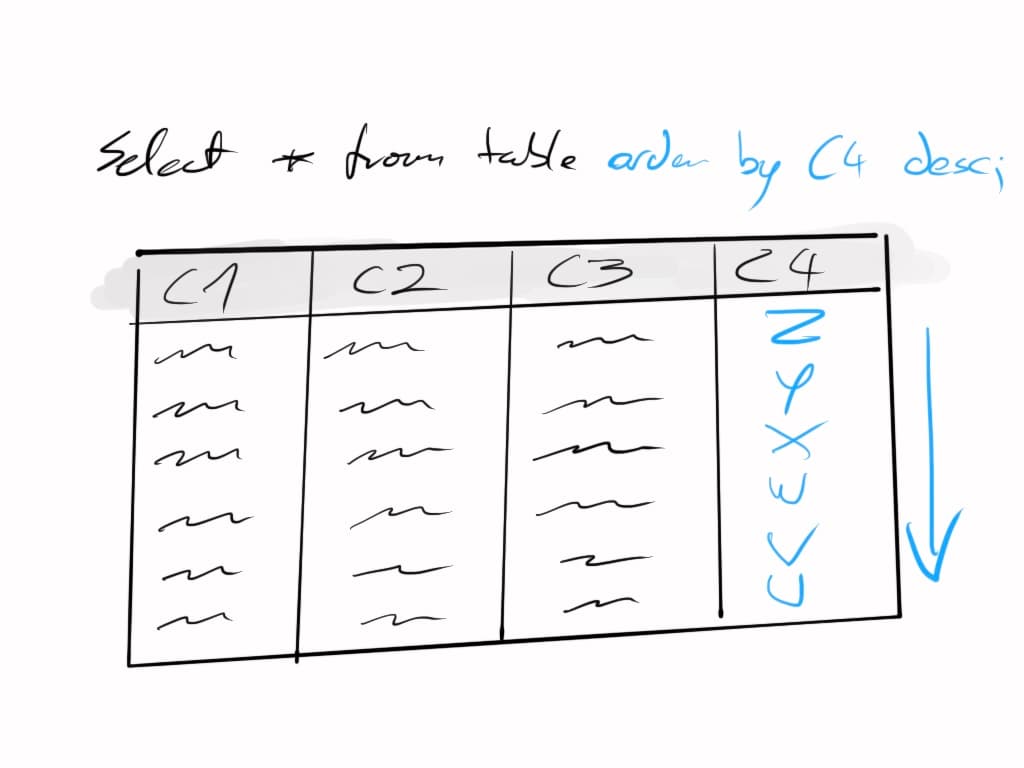 Select * from table order by C4 desc;
C1 C2 C3 C4
Z
Y
X
W
V
U